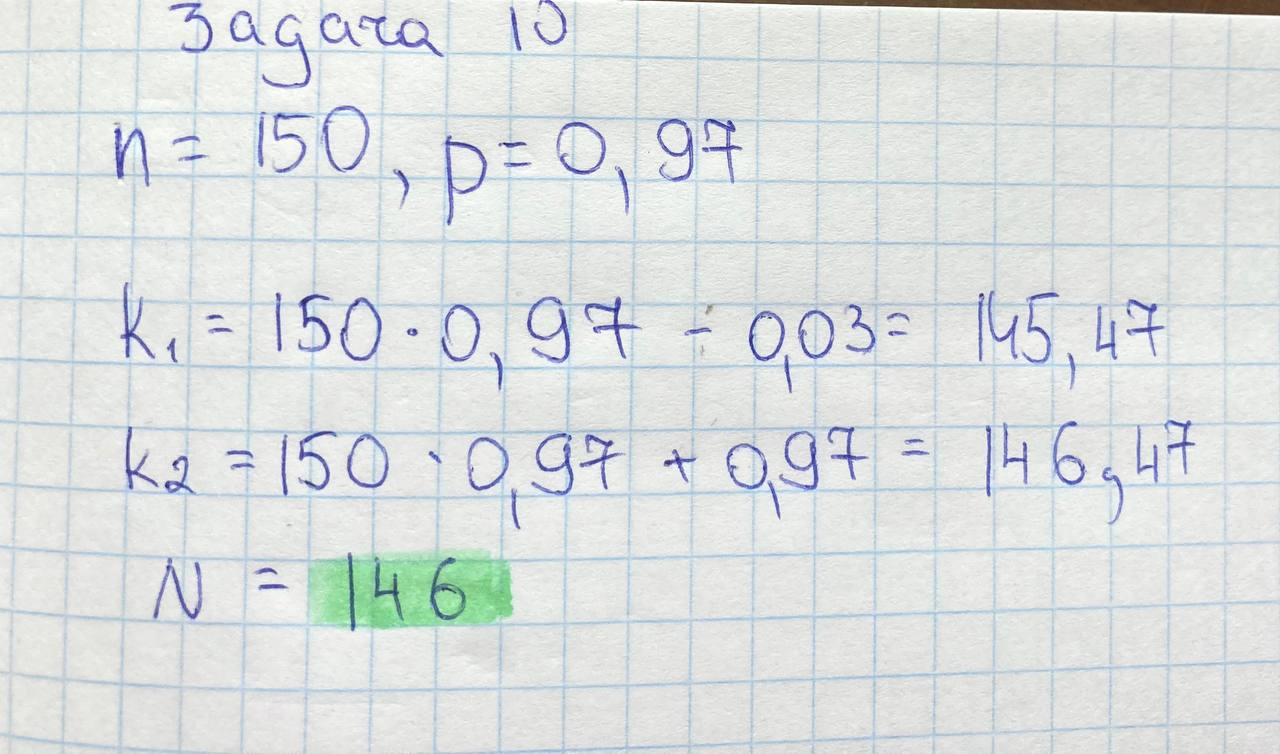 Задача 10
n = 150, p = 0,97
k₁ = 150 · 0,97 - 0,03 = 145,47
k₂ = 150 · 0,97 + 0,97 = 146,47
N = 146